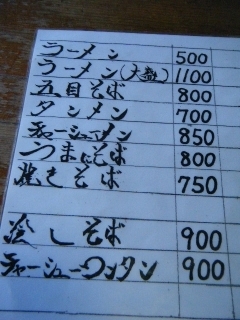 ラーメン 500
ラーメン(大盛) 1100
五目そば 800
タンメン 700
チャーシューメン 850
うまにそば 800
焼きそば 750
冷しそば 900
チャーシューワンタン 900